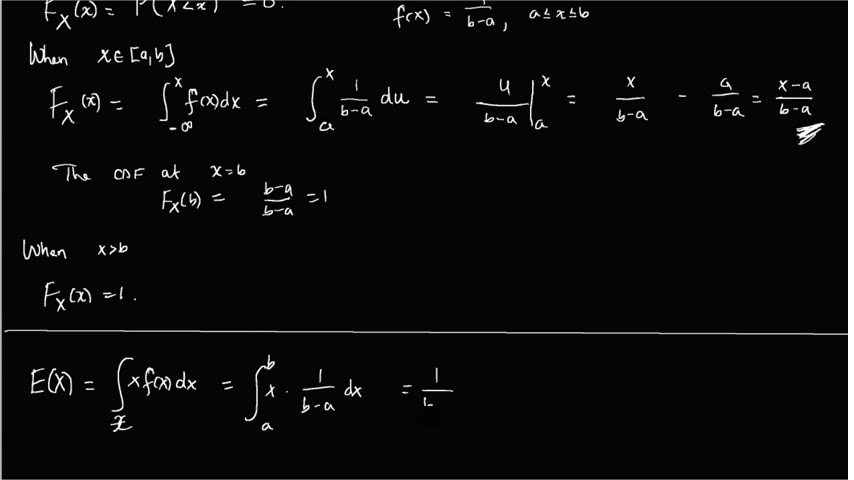 F_X(x) = P(X<x) = 0. f(x) = 1/(b-a), a≤x≤b
When x∈[a,b]
F_X(x) = ∫_{-∞}^{x} f(x)dx = ∫_{a}^{x} 1/(b-a) du = u/(b-a) |_{a}^{x} = x/(b-a) - a/(b-a) = (x-a)/(b-a)
The CDF at x=b
F_X(b) = (b-a)/(b-a) = 1
When x>b
F_X(x) = 1.
E(X) = ∫_x x f(x) dx = ∫_{a}^{b} x · 1/(b-a) dx = 1/